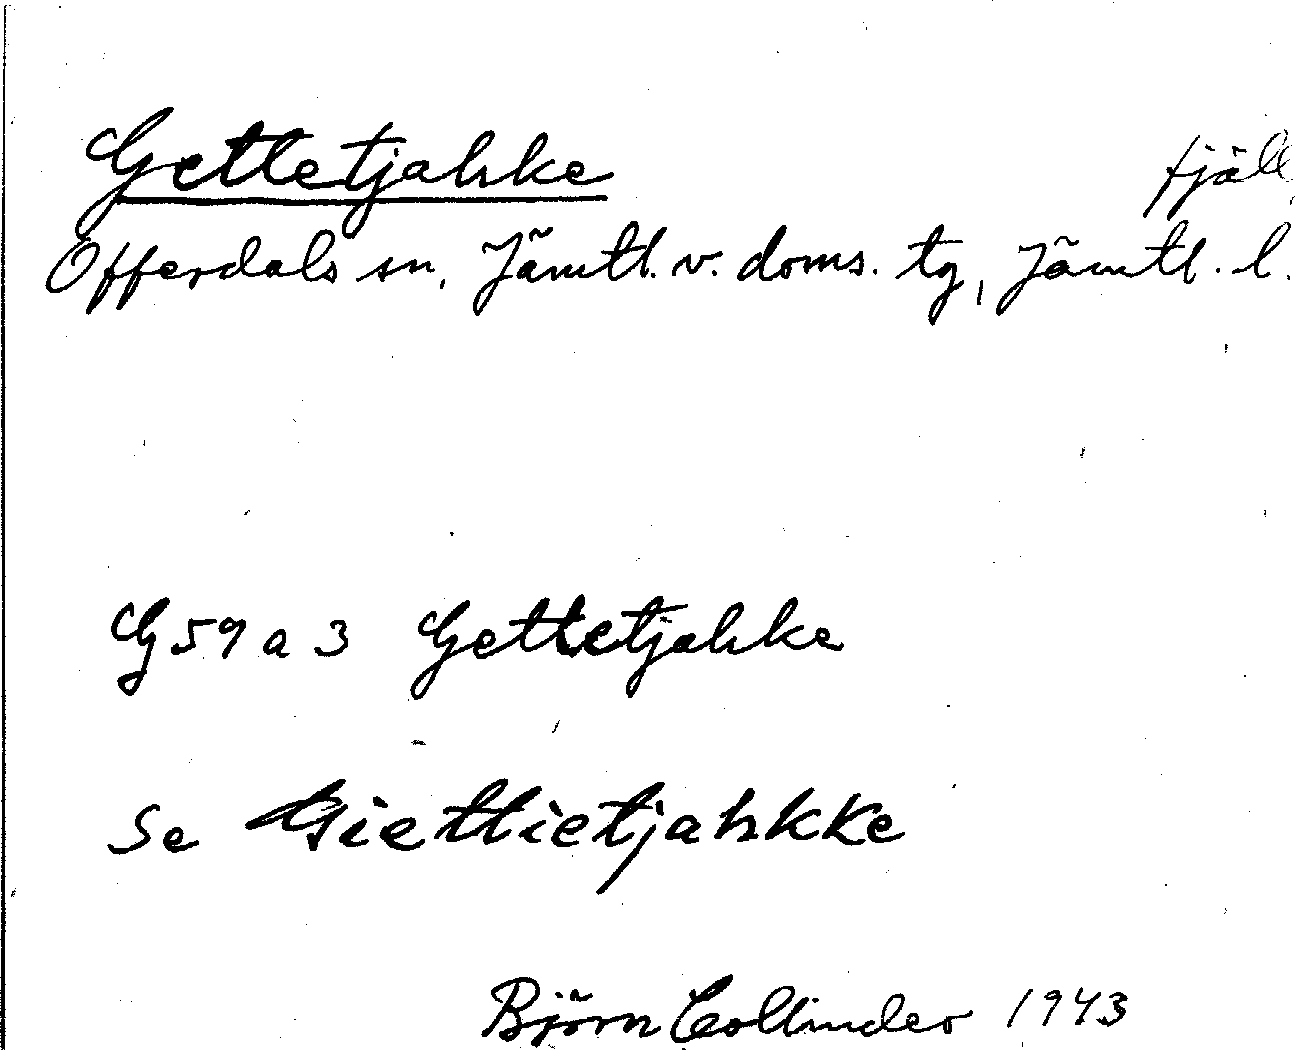 Gettetjahke fjäll
Offerdals sn, Jämtl. v. doms. tg, Jämtl. l.
G59 a 3 Gettetjahke
Se Giettietjahkke
Björn Collinder 1943